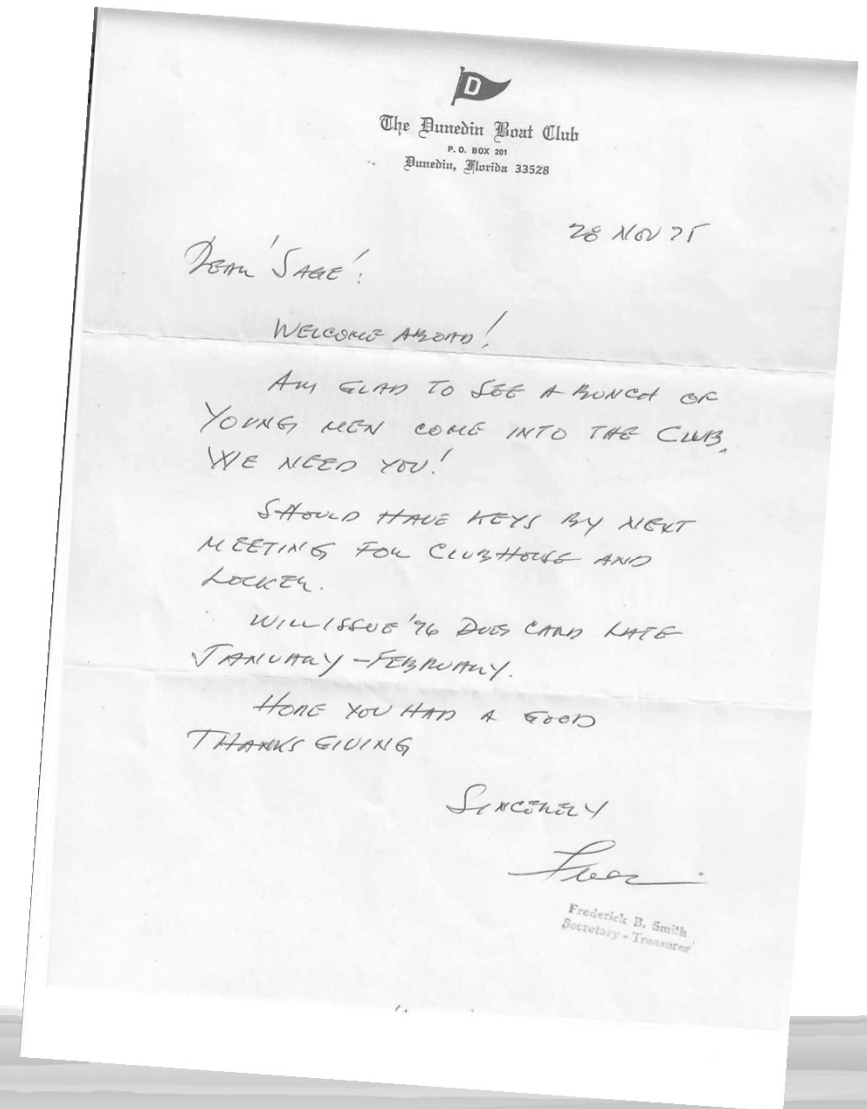 D
The Dunedin Boat Club
P. O. BOX 201
Dunedin, Florida 33528
28 NOV 75
DEAR 'SAGE':
WELCOME ABOARD!
AM GLAD TO SEE A BUNCH OF
YOUNG MEN COME INTO THE CLUB.
WE NEED YOU!
SHOULD HAVE KEYS BY NEXT
MEETING FOR CLUBHOUSE AND
LOCKER.
WILL ISSUE '76 DUES CARD LATE
JANUARY-FEBRUARY.
HOPE YOU HAD A GOOD
THANKSGIVING
SINCERELY
Fred
Frederick B. Smith
Secretary - Treasurer